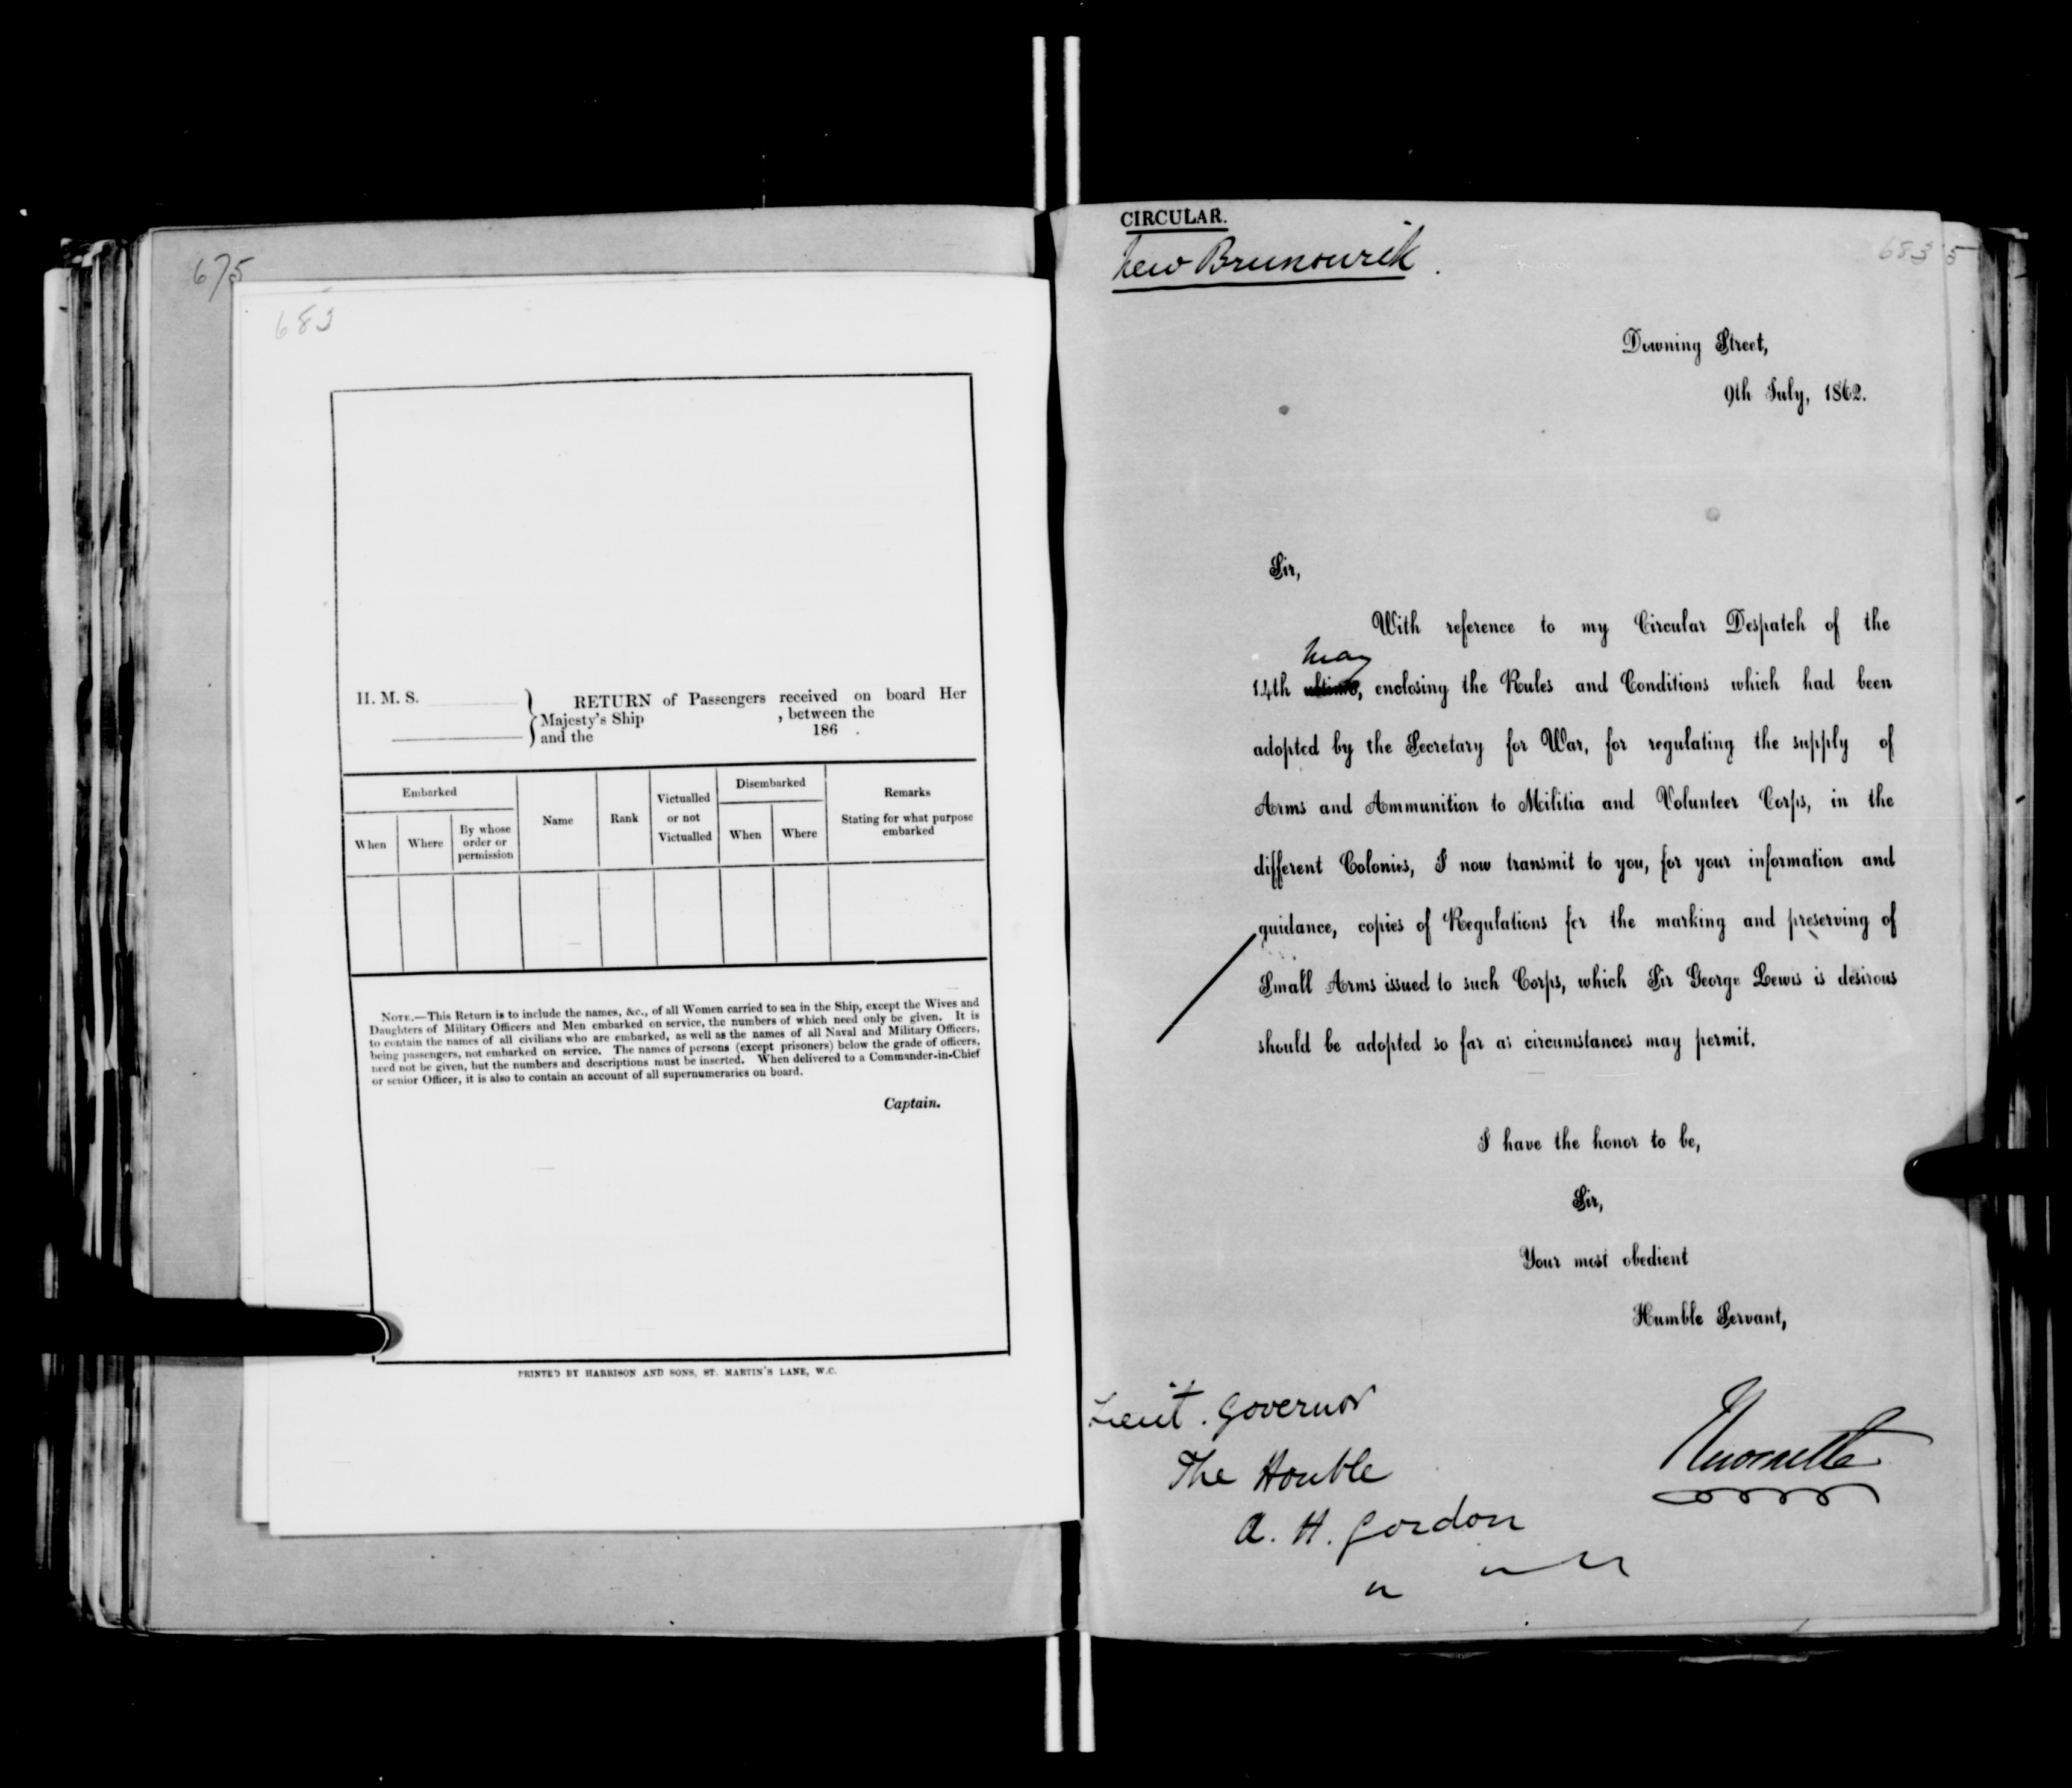 675
683
H. M. S.
RETURN of Passengers received on board Her
Majesty's Ship , between the
and the 186 .
Embarked
When
Where
By whose
order or
permission
Name
Rank
Victualled
or not
Victualled
Disembarked
When
Where
Remarks
Stating for what purpose
embarked
NOTE.—This Return is to include the names, &c., of all Women carried to sea in the Ship, except the Wives and
Daughters of Military Officers and Men embarked on service, the numbers of which need only be given. It is
to contain the names of all civilians who are embarked, as well as the names of all Naval and Military Officers,
being passengers, not embarked on service. The names of persons (except prisoners) below the grade of officers,
need not be given, but the numbers and descriptions must be inserted. When delivered to a Commander-in-Chief
or senior Officer, it is also to contain an account of all supernumeraries on board.
Captain.
PRINTED BY HARRISON AND SONS, ST. MARTIN'S LANE, W.C.
CIRCULAR.
New Brunswick.
683 5
Downing Street,
9th July, 1862.
Sir,
With reference to my Circular Despatch of the
May
14th ultimo, enclosing the Rules and Conditions which had been
adopted by the Secretary for War, for regulating the supply of
Arms and Ammunition to Militia and Volunteer Corps, in the
different Colonies, I now transmit to you, for your information and
guidance, copies of Regulations for the marking and preserving of
Small Arms issued to such Corps, which Sir George Lewis is desirous
should be adopted so far as circumstances may permit.
I have the honor to be,
Sir,
Your most obedient
Humble Servant,
Newcastle
Lieut. Governor
The Honble
A. H. Gordon